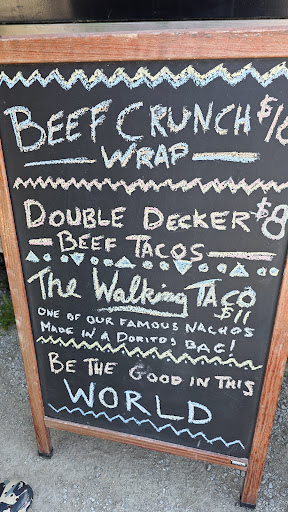 BEEF CRUNCH
WRAP
DOUBLE DECKER $8
BEEF TACOS
The Walking TACO
$11
ONE OF OUR FAMOUS NACHOS
MADE IN A DORITOS BAG!
BE THE GOOD IN THIS
WORLD